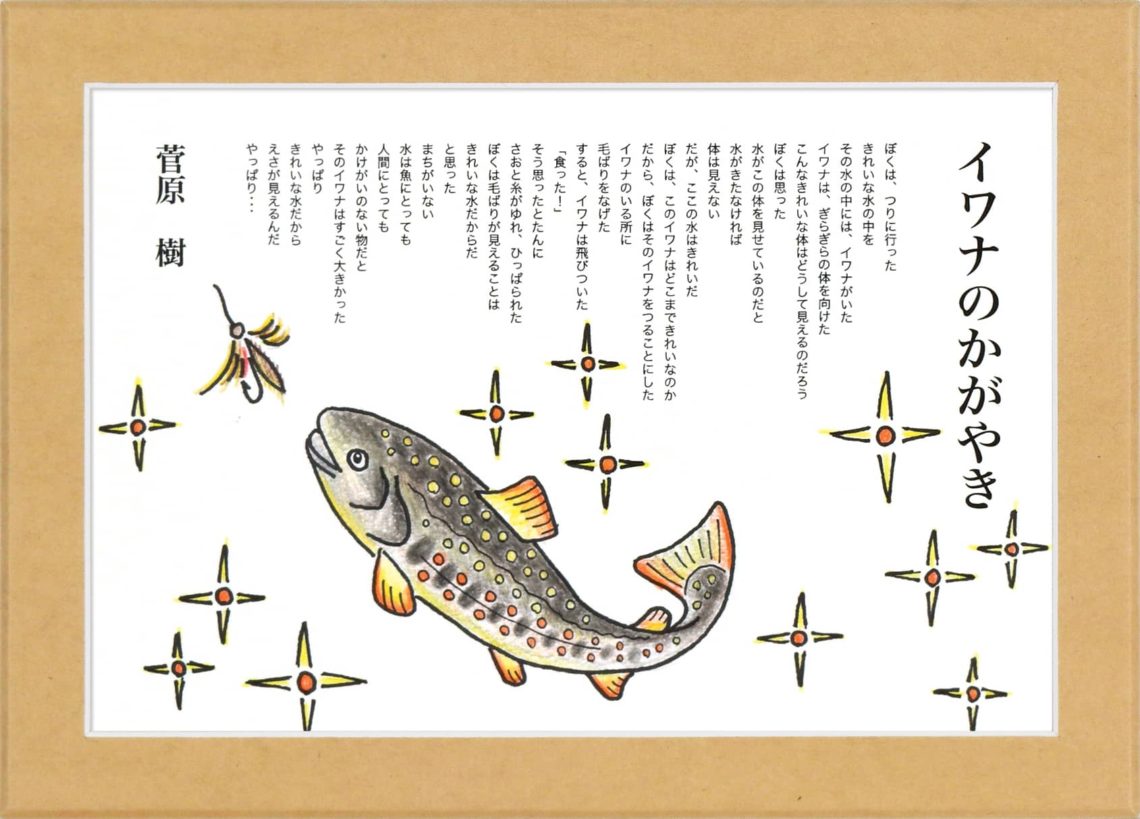 イワナのかがやき
ぼくは、つりに行った
きれいな水の中を
その水の中には、イワナがいた
イワナは、ぎらぎらの体を向けた
こんなきれいな体はどうして見えるのだろう
ぼくは思った
水がこの体を見せているのだと
水がきたなければ
体は見えない
だが、ここの水はきれいだ
ぼくは、このイワナはどこまできれいなのか
だから、ぼくはそのイワナをつることにした
イワナのいる所に
毛ばりをなげた
すると、イワナは飛びついた
「食った！」
そう思ったとたんに
さおと糸がゆれ、ひっぱられた
ぼくは毛ばりが見えることは
きれいな水だからだ
と思った
まちがいない
水は魚にとっても
人間にとっても
かけがいのない物だと
そのイワナはすごく大きかった
やっぱり
きれいな水だから
えさが見えるんだ
やっぱり・・・
菅原 樹